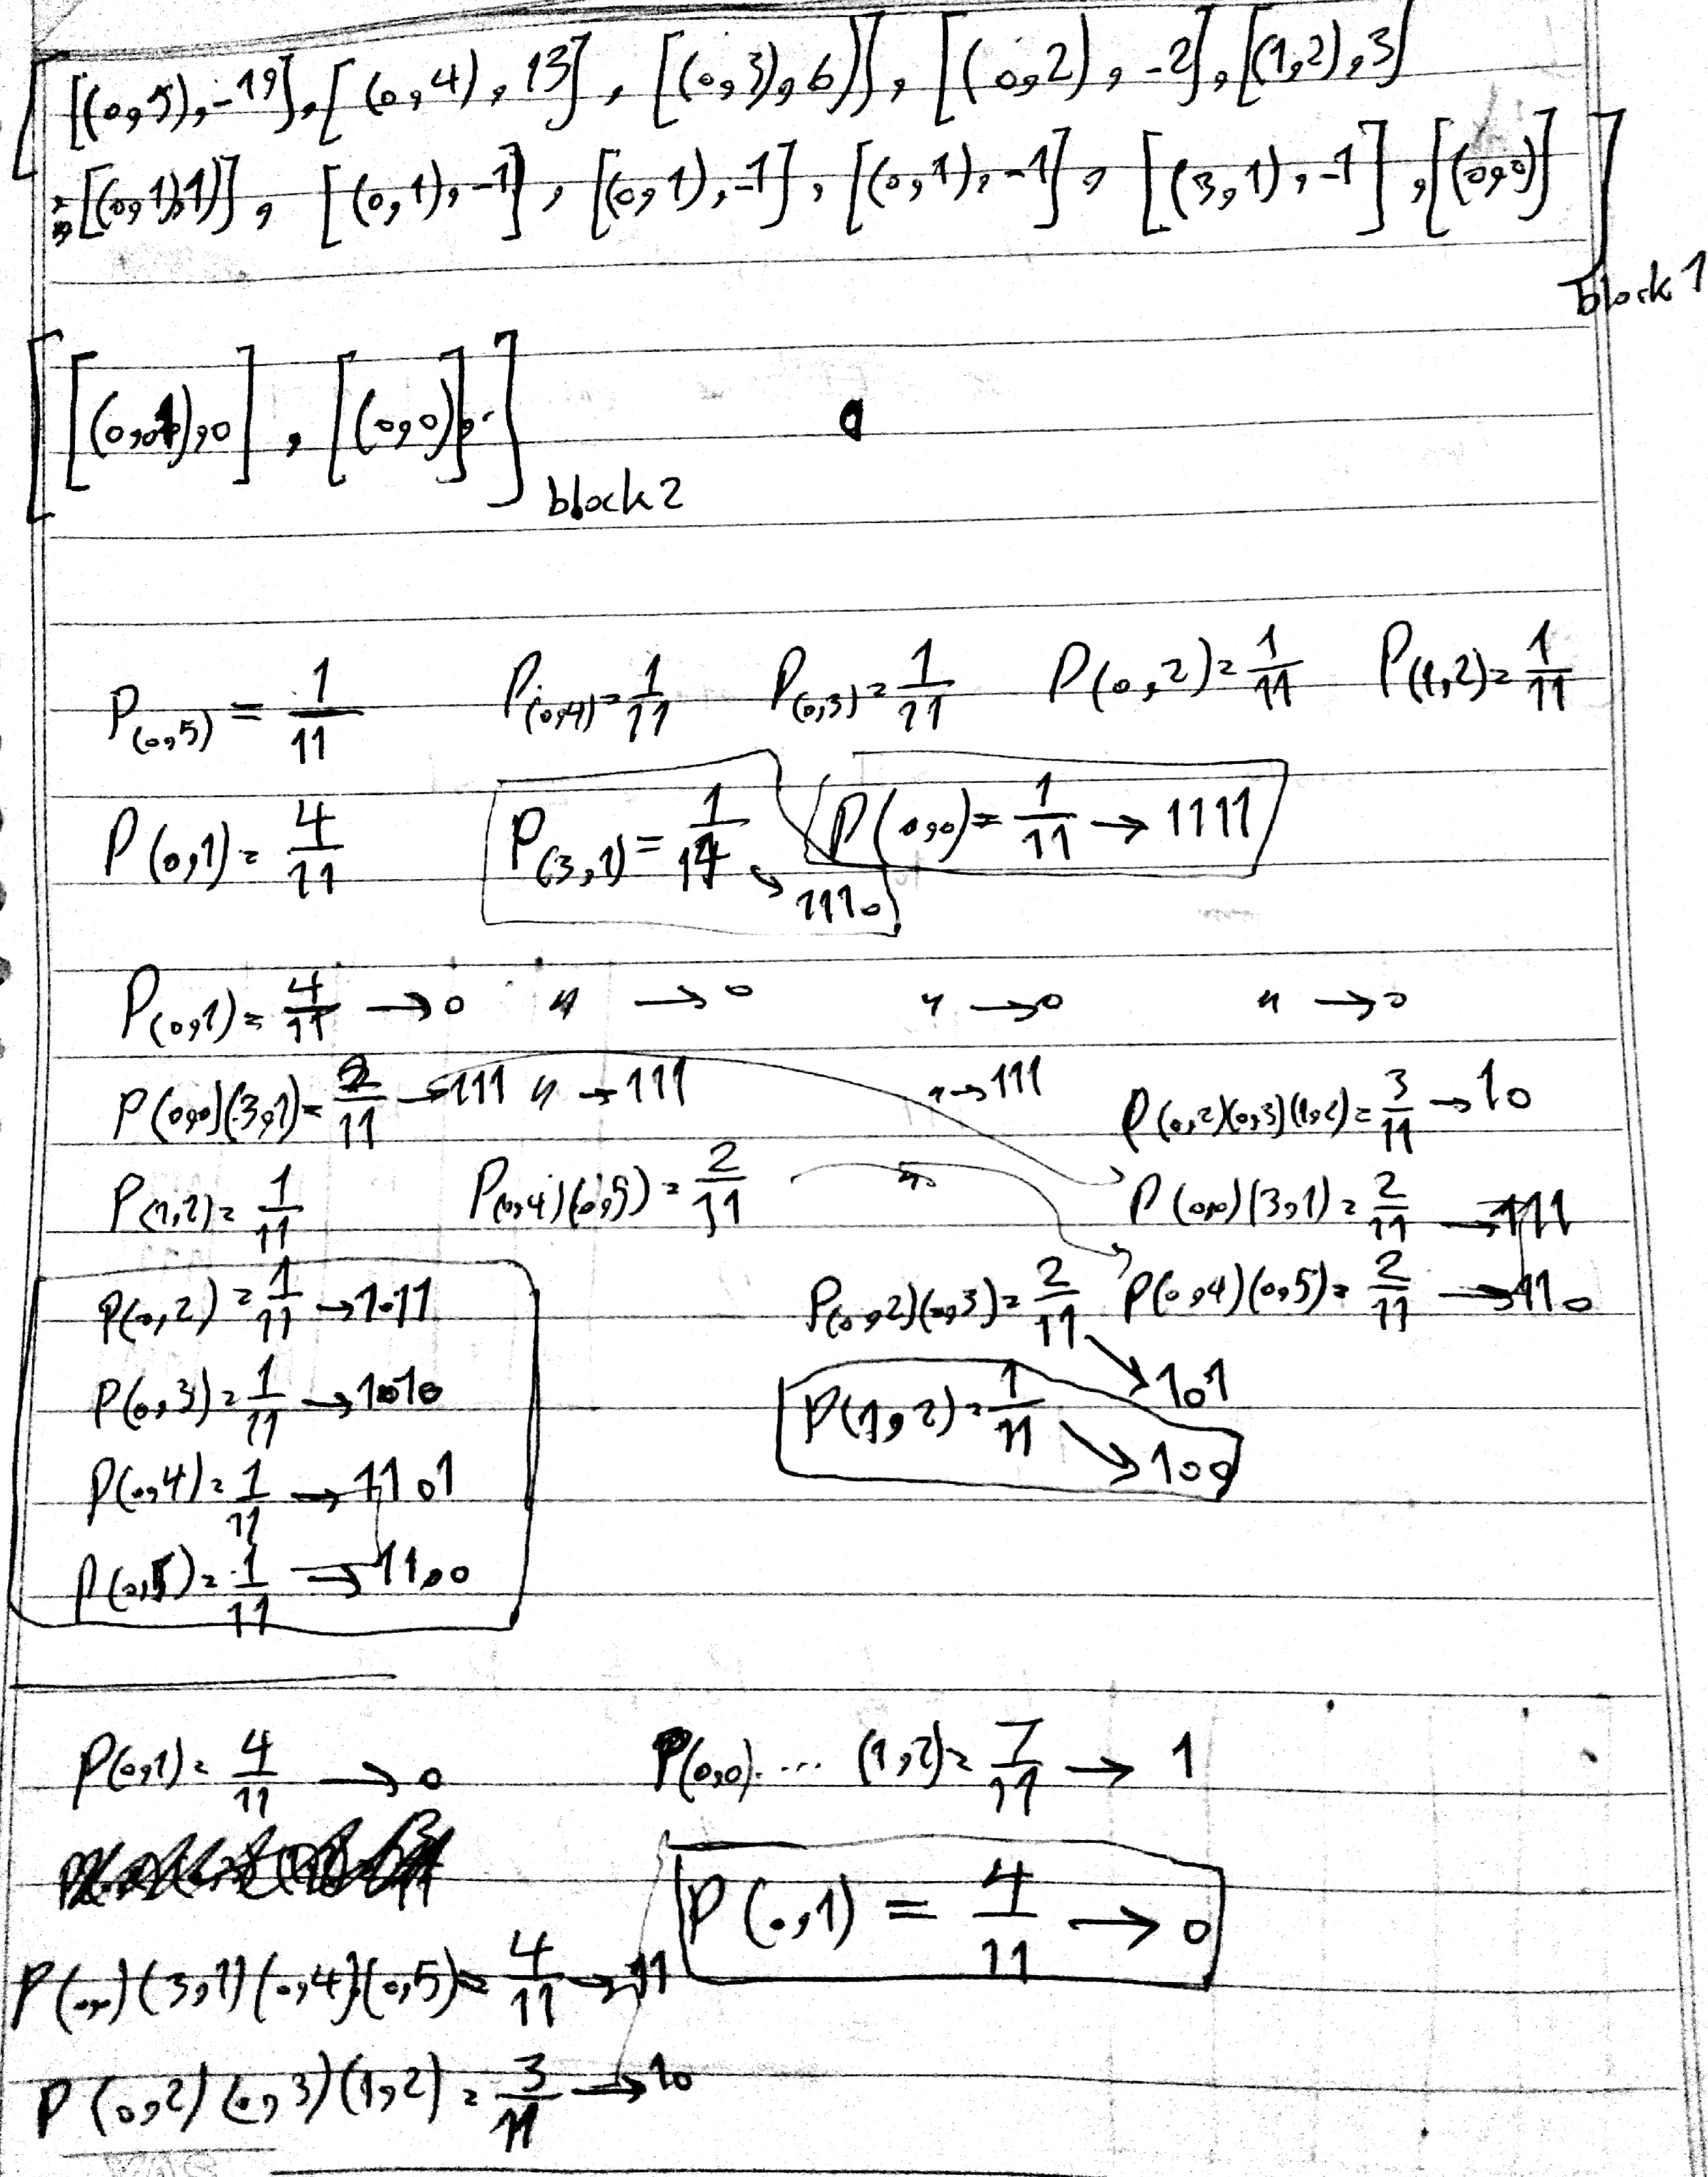 [[(0,5),-19],[(0,4),13],[(0,3),6)],[(0,2),-2],[(1,2),3]
,[(0,1),1)],[(0,1),-1],[(0,1),-1],[(0,1),-1],[(3,1),-1],[(0,0)]]
block 1
[[(0,1),0],[(0,0)]]
block 2
P(0,5) = 1/11 P(0,4) = 1/11 P(0,3) = 1/11 P(0,2) = 1/11 P(1,2) = 1/11
P(0,1) = 4/11 P(3,1) = 1/11 → 1110 P(0,0) = 1/11 → 1111
P(0,1) = 4/11 → 0 " → 0 " → 0 " → 0
P(0,0)(3,1) = 2/11 → 111 " → 111 " → 111 P(0,2)(0,3)(1,2) = 3/11 → 10
P(1,2) = 1/11 P(0,4)(0,5) = 2/11 " P(0,0)(3,1) = 2/11 → 111
P(0,2) = 1/11 → 1011 P(0,2)(0,3) = 2/11 → 101 P(0,4)(0,5) = 2/11 → 110
P(0,3) = 1/11 → 1010 P(1,2) = 1/11 → 100
P(0,4) = 1/11 → 1101
P(0,5) = 1/11 → 1100
P(0,1) = 4/11 → 0 P(0,0). ... (1,2) = 7/11 → 1
P(0,1) = 4/11 → 0
P(0,0)(3,1)(0,4)(0,5) = 4/11 → 11
P(0,2)(0,3)(1,2) = 3/11 → 10